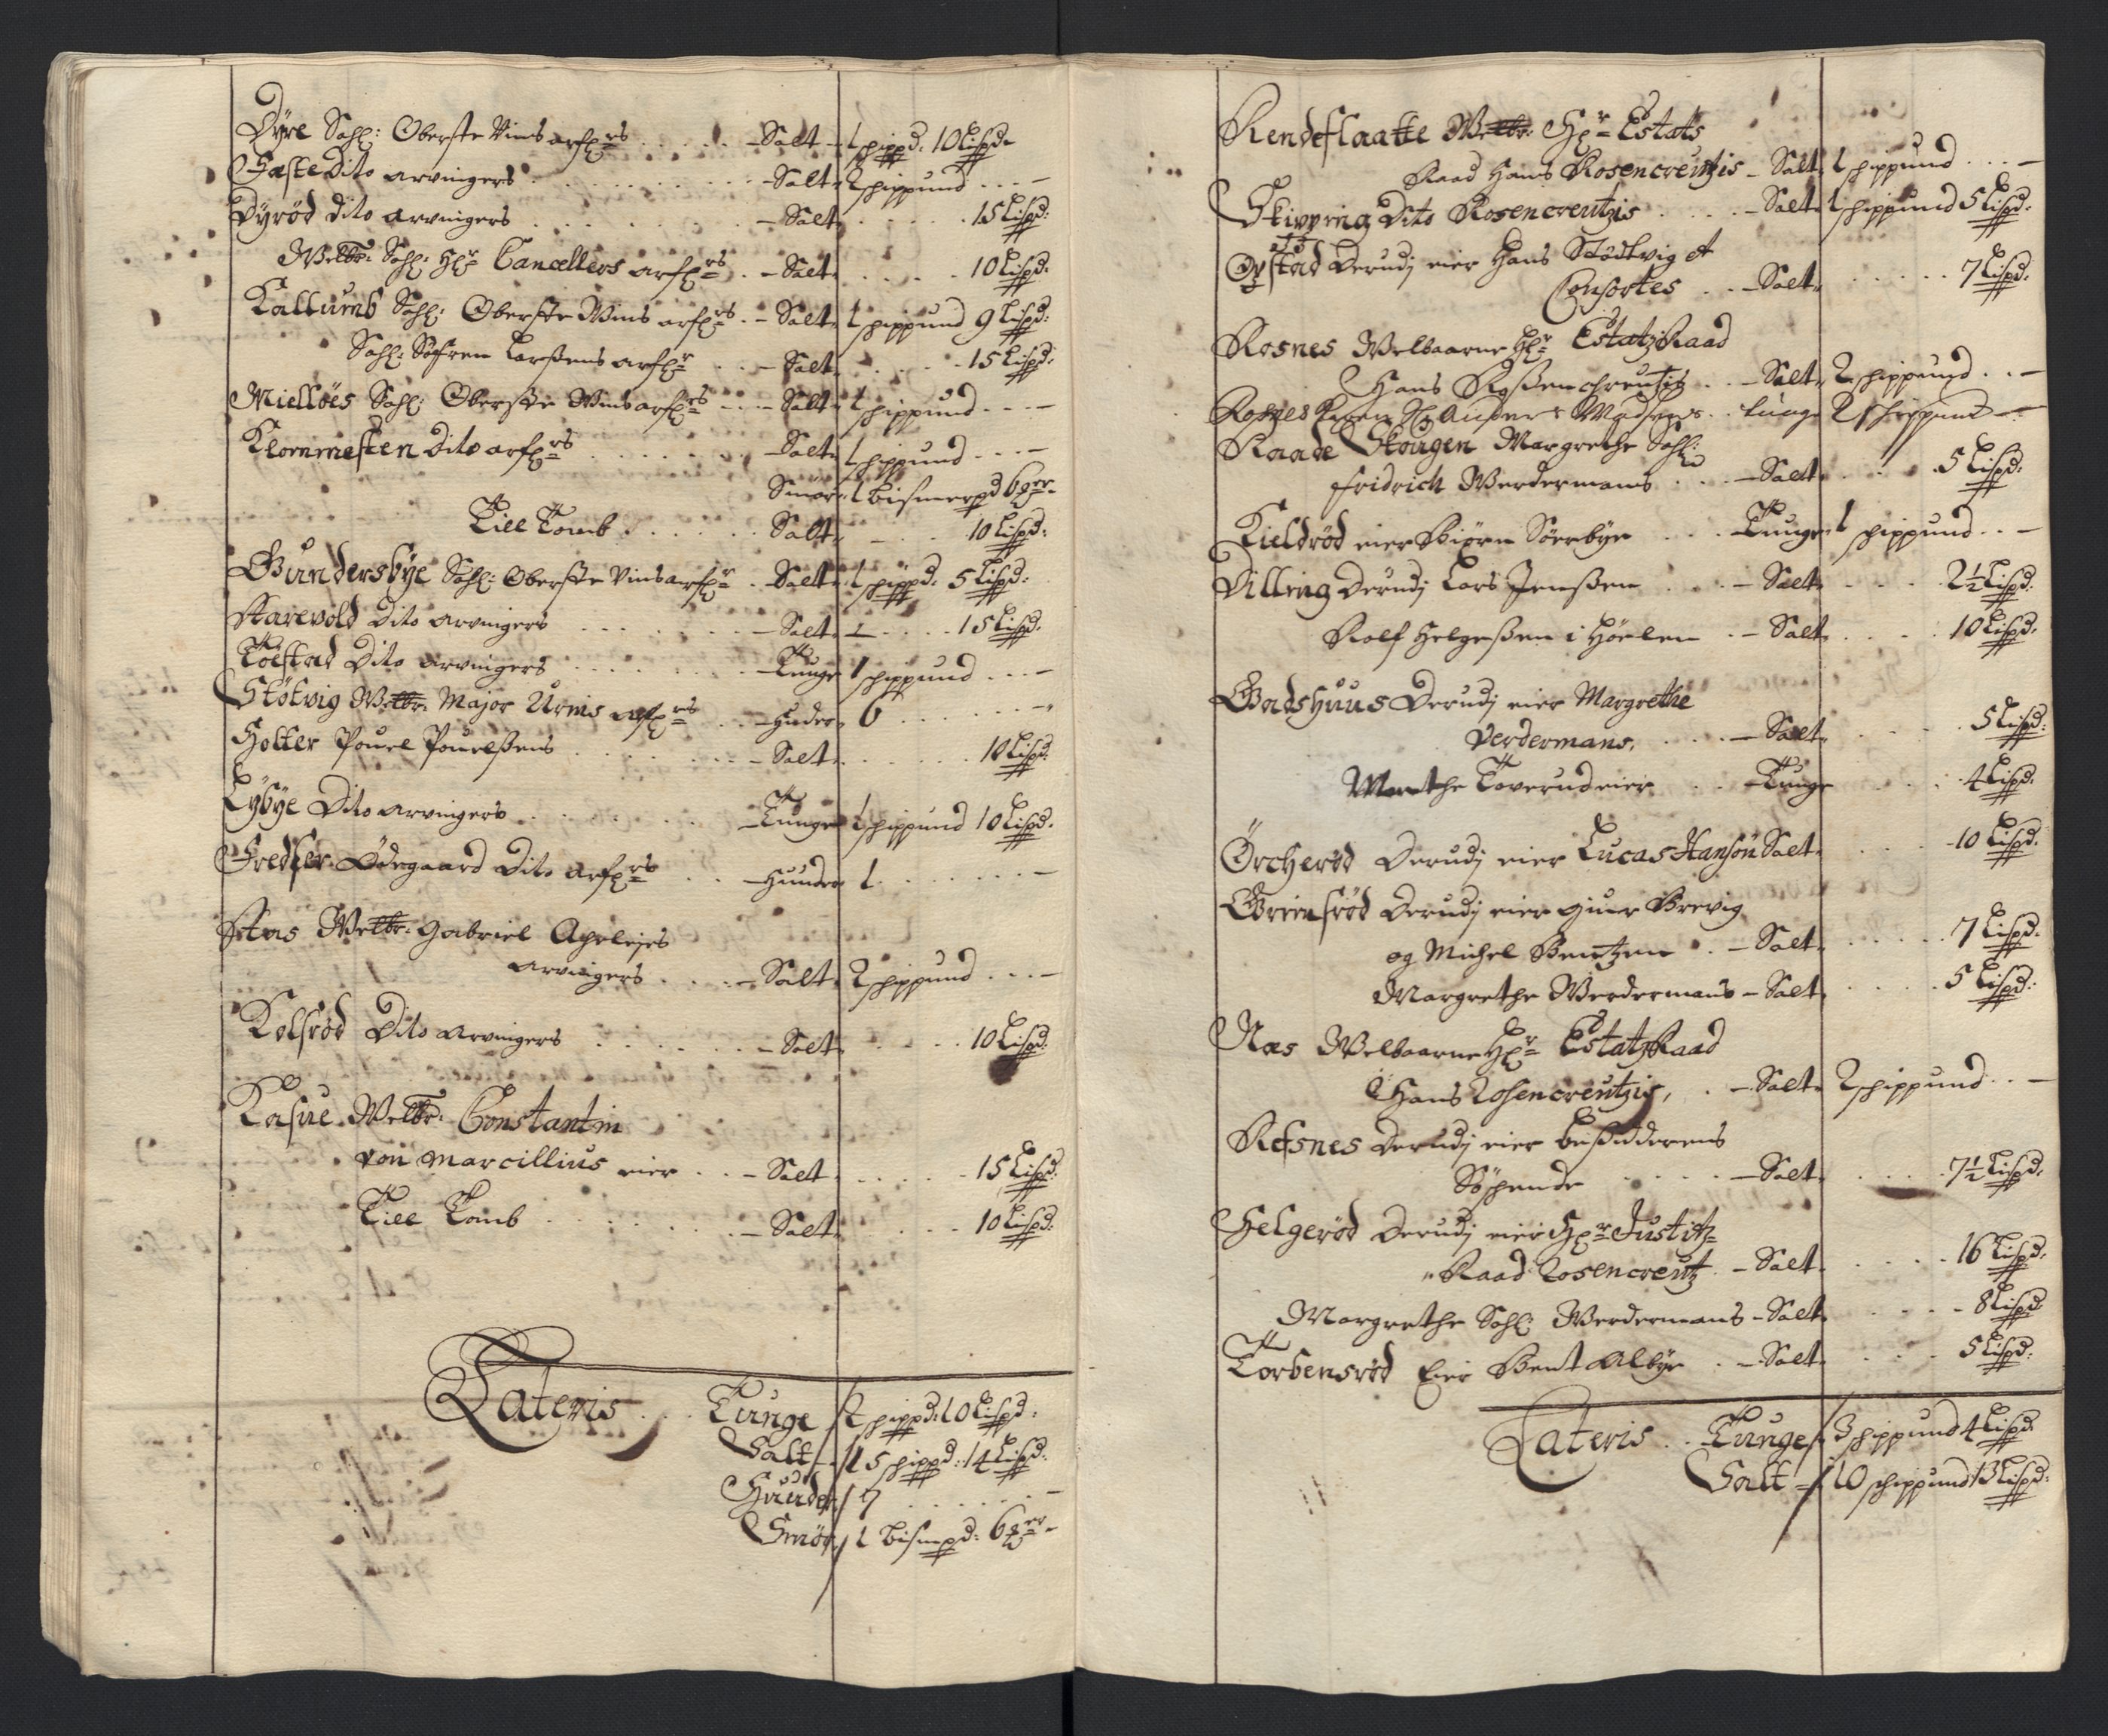 Dyre Sahl: Oberste Vins arfrs - Salt - 1 schippd: 10 Lispd:
Hæste Dito arvingers - Salt 2 schippund
Dyrød dito arvingers - Salt 15 Lispd:
Welbr: Sahl: Hr Cancellers arfrs - Salt 10 Lispd:
Kallumb Sahl: Oberste Vins arfrs - Salt 1 schippund 9 Lispd:
Sahl: Søfren Larßens arfr - Salt 15 Lispd:
Mielløes Sahl: Oberste Vins arfrs - Salt 1 schippund
Klommesten Dito arfrs - Salt 1 schippund
Smør 1 bismerpd 6 mrr
Till Tomb - Salt 10 Lispd:
Gundersbye Sahl: Oberste Vins arfr - Salt 1 schippd: 5 Lispd:
Harevold Dito arvingers - Salt 15 Lispd:
Tøfstad Dito arvingers - Tunge 1 schippund
Støtvig Welbr: Major Urnis arfrs - Huder 6
Holter Pouel Pouelßens - Salt 10 Lispd:
Lybye Dito arvingers - Tunge 1 schippund 10 Lispd:
Fredser Ødegaard Dito arfrs - Hunder 1
Aas Welbr: Gabriel Aphelejes
arvingers - Salt 2 schippund
Kolsrød Dito arvingers - Salt 10 Lispd:
Kasue Welbr: Constantin
von Marcillius eier - Salt 15 Lispd:
Till Tomb - Salt 10 Lispd:
Lateris Tunge 2 schippd: 10 Lispd:
Salt 15 schippd: 14 Lispd:
Huuder 7
Smør 1 bismpd: 6 mrr
Rendeflaatte Welbr: Hr Estats
Raad Hans Rosencreutzis - Salt 1 schippund
Skipping Dito Rosencreutzis - Salt 1 schippund 5 Lispd:
Opstad Derudj eier Hans Stødtvig et
Consortes - Salt 7 Lispd:
Rosnes Welbaarne Hr Estatz Raad
Hans Roßenchreutzis - Salt 2 schippund
Rosnes Anders Madsens Tunge 2 schippund
Raade Skougen Margrethe Sahl:
fridrich Werdermans - Salt 5 Lispd:
Kieldrød eier Biørn Sørbye - Tunge 1 schippund
Dilling Derudj Lars Jenßen - Salt 2½ Lispd:
Rolf Helgeßen i Høelen - Salt 10 Lispd:
Gadshuus Derudj eier Margrethe
Verdermans - Salt 5 Lispd:
Marthe Taverud eier - Tunge 4 Lispd:
Ørcherød Derudj eier Lucas Hansøn Salt 10 Lispd:
Griinsrød Derudj eier Giuer Brevig
og Michel Bentzen - Salt 7 Lispd:
Margrethe Werdermans - Salt 5 Lispd:
Næs Welbaarne Hr Estatz Raad
Hans Rosencreutzis, - Salt 2 schippund
Refsnes Derudj eier besidderens
Søschende - Salt 7½ Lispd:
Helgerød Derudj eier Hr Justitz
Raad Rosencreutz - Salt 16 Lispd:
Margrethe Sahl: Werdermans - Salt 8 Lispd:
Torbensrød Eier Bent Albye - Salt 5 Lispd:
Lateris Tunge 3 schippund 4 Lispd
Salt 10 schippund 13 Lispd: